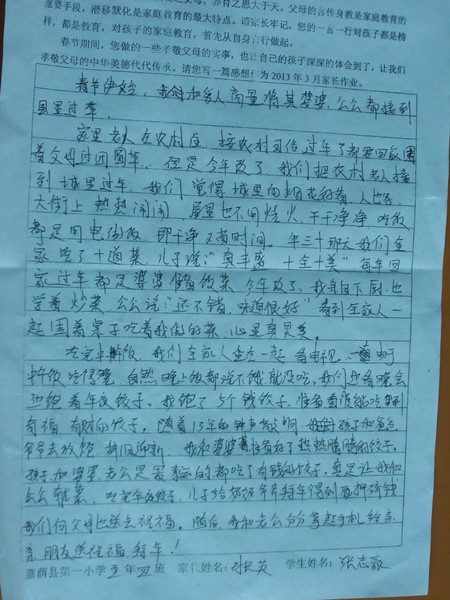 重要手段，潜移默化是家庭教育的最大特点。请家长牢记，您的一言一行对孩子都是榜
样，都是教育，对孩子的家庭教育，首先从自身言行做起。
春节期间，您做的一些孝敬父母的实事，也让自己的孩子深深的体会到了，让我们
孝敬父母的中华美德代代传承。请您写一篇感想作为 2013 年 3 月家长作业。
春节伊始，我和家人商量将其婆婆，公公都接到
县里过年。
家里老人在农村住，按农村习俗过年了都要回家围
着父母过团圆年，但是今年改了，我们把农村老人接
到城里过年，我们觉得城里的烟花好看，人也多
大街上热热闹闹，屋里也不用烧火，干干净净 吃饭
都是用电做饭，即干净又省时间。年三十那天我们全
家吃了十道菜，儿子说："真丰盛 十全十美" 每年回
家过年都是婆婆做饭菜，今年改了，我亲自下厨也
学着炒菜 公公说："还不错，味道很好" 看到全家人一
起围着桌子吃着我做的菜，心里真是美。
吃完年午饭，我们全家人坐在一起看电视，由于
午饭吃得晚，自然晚上饭都说不饿就没吃，我们边看晚会
边包着年夜饺子。我包了5个钱饺子，准备看谁能吃到
有福 有财的饺子，随着13年的钟声敲响 孩子和爸爸
爷爷去放炮，辞旧迎新， 我和婆婆看着热热腾腾的饺子，
孩子和婆婆 老公是最幸运的都吃了有钱的饺子，
公公 吃完年夜饺子，儿子给爷爷奶奶拜年得到压岁钱
我们向父母也送去祝福。随后 我和老公分分拿起手机给亲
亲 朋友送祝福 拜年！
嘉荫县第一小学 五 年 四 班 家长姓名： 英 学生姓名：张志